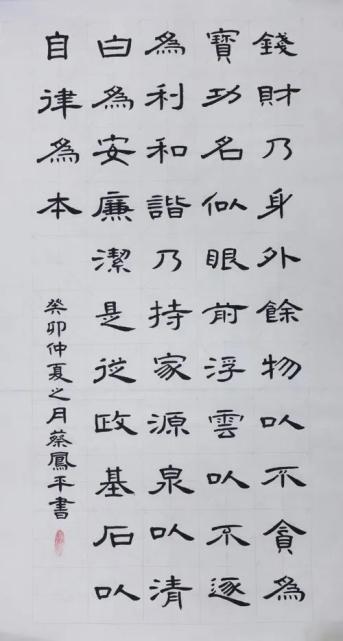 錢財乃身外餘物以不貪為
寶功名似眼前浮雲以不逐
為利和諧乃持家源泉以清
白為安廉潔是從政基石以
自律為本
癸卯仲夏之月蔡鳳平書